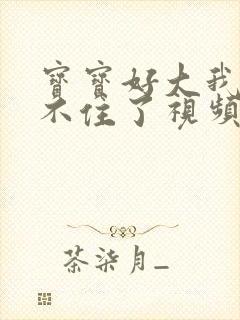 寶寶好大我
不住了視頻
茶柒月_